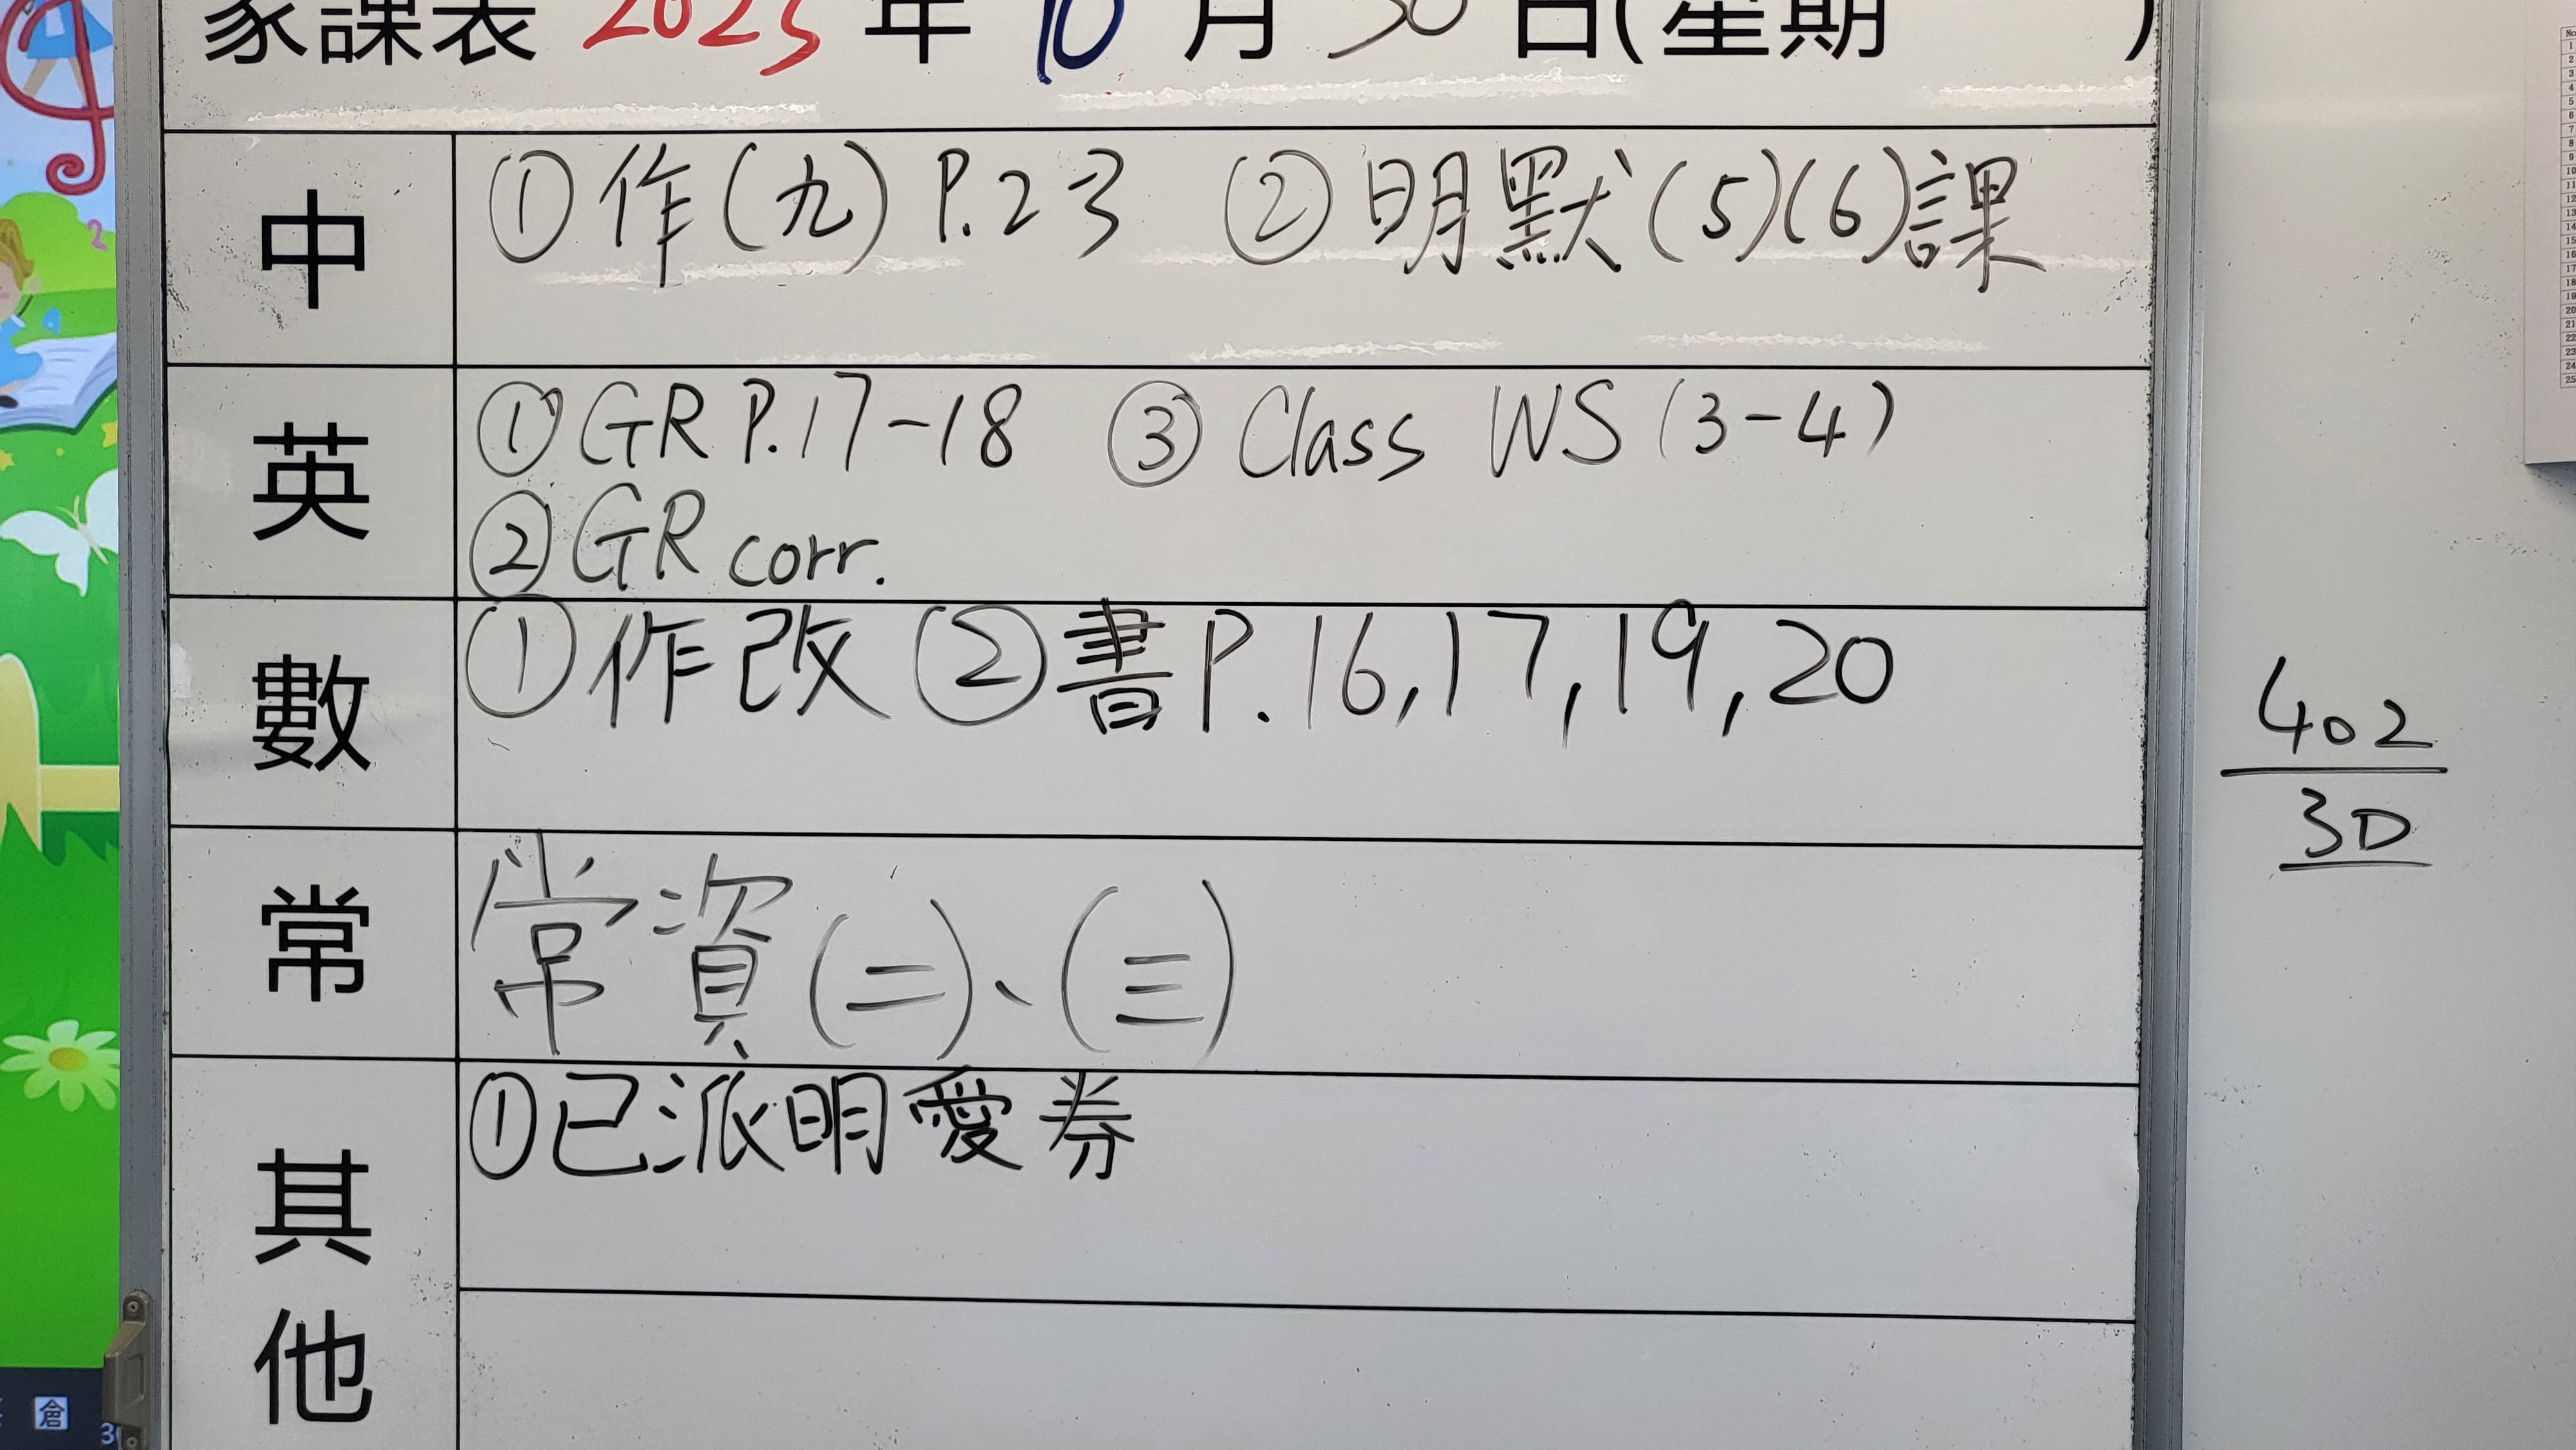 家課表 2025 年 10 月 30 日(星期 )
中
①作(九) P.23 ②明默(5)(6)課
英
①GR P.17-18 ③Class WS (3-4)
②GR corr.
數
①作改②書P.16,17,19,20
402
30
常
常資(二)、(三)
其他
①已派明愛券
倉